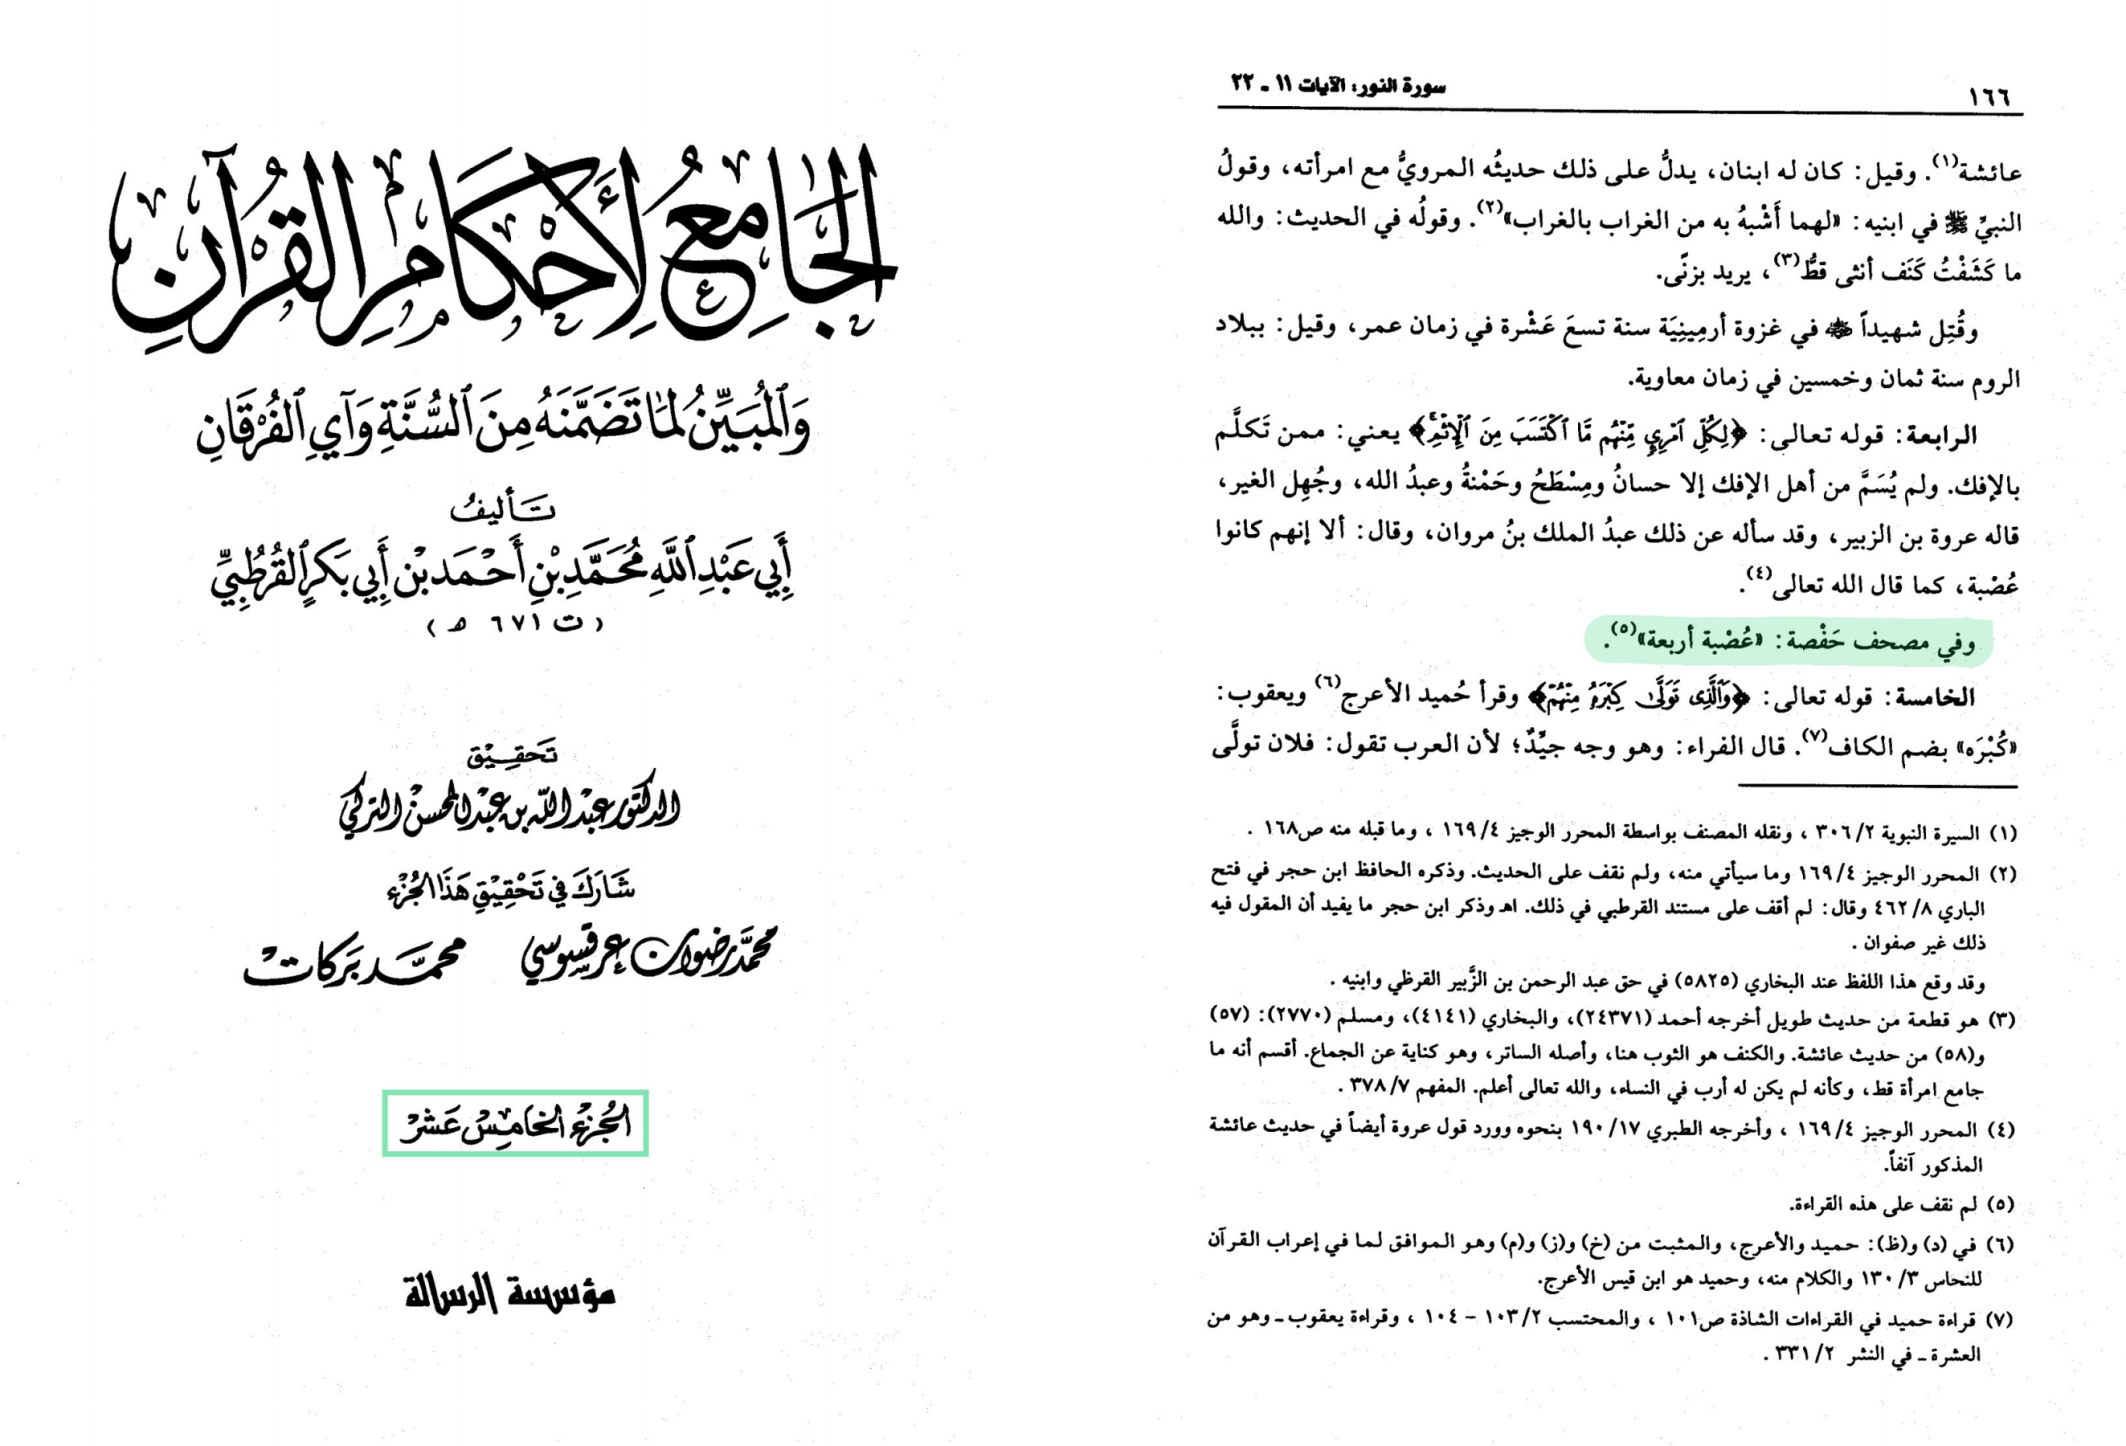 الجامع لأحكام القرآن
وَالمُبَيِّنُ لِمَا تَضَمَّنَهُ مِنَ السُّنَّةِ وَآيِ الفُرْقَانِ
تَأليفُ
أَبِي عَبْدِ اللَّهِ مُحَمَّدِ بْنِ أَحْمَدَ بْنِ أَبِي بَكْرٍ القُرْطُبِيِّ
(ت ٦٧١ هـ)
تَحقِيْق
الدكتور عبد الله بن عبد المحسن التركي
شَارَكَ فِي تَحْقِيْقِ هَذَا الجُزْءِ
محمَّد رضوان عرقسوسي محمَّد بَركات
الجُزءُ الخَامِسْ عَشَرْ
مؤسسة الرسالة
١٦٦ سورة النور: الآيات ١١ ـ ٢٢
عائشة(١). وقيل: كان له ابنان، يدلُّ على ذلك حديثُه المرويُّ مع امرأته، وقولُ
النبيِّ ﷺ في ابنيه: «لهما أَشْبهُ به من الغراب بالغراب»(٢). وقولُه في الحديث: والله
ما كَشَفْتُ كَنَف أنثى قطُّ(٣)، يريد بزنًى.
وقُتِل شهيداً ﷺ في غزوة أرمِينِيَة سنة تسعَ عَشْرة في زمان عمر، وقيل: ببلاد
الروم سنة ثمان وخمسين في زمان معاوية.
الرابعة: قوله تعالى: ﴿لِكُلِّ امْرِئٍ مِّنْهُم مَّا اكْتَسَبَ مِنَ الْإِثْمِ﴾ يعني: ممن تَكلَّم
بالإفك. ولم يُسَمَّ من أهل الإفك إلا حسانُ ومِسْطَحُ وحَمْنةُ وعبدُ الله، وجُهِل الغير،
قاله عروة بن الزبير، وقد سأله عن ذلك عبدُ الملك بنُ مروان، وقال: ألا إنهم كانوا
عُصْبة، كما قال الله تعالى(٤).
وفي مصحف حَفْصة: «عُصْبة أربعة»(٥).
الخامسة: قوله تعالى: ﴿وَالَّذِى تَوَلَّى كِبْرَهُ مِنْهُمْ﴾ وقرأ حُميد الأعرج(٦) ويعقوب:
«كُبْرَه» بضم الكاف(٧). قال الفراء: وهو وجه جيِّدٌ؛ لأن العرب تقول: فلان تولَّى
(١) السيرة النبوية ٣٠٦/٢ ، ونقله المصنف بواسطة المحرر الوجيز ١٦٩/٤ ، وما قبله منه ص١٦٨ .
(٢) المحرر الوجيز ١٦٩/٤ وما سيأتي منه، ولم نقف على الحديث. وذكره الحافظ ابن حجر في فتح
الباري ٤٦٢/٨ وقال: لم أقف على مستند القرطبي في ذلك. اهـ وذكر ابن حجر ما يفيد أن المقول فيه
ذلك غير صفوان .
وقد وقع هذا اللفظ عند البخاري (٥٨٢٥) في حق عبد الرحمن بن الزَّبير القرظي وابنيه .
(٣) هو قطعة من حديث طويل أخرجه أحمد (٢٤٣٧١)، والبخاري (٤١٤١)، ومسلم (٢٧٧٠): (٥٧)
و(٥٨) من حديث عائشة. والكنف هو الثوب هنا، وأصله الساتر، وهو كناية عن الجماع. أقسم أنه ما
جامع امرأة قط، وكأنه لم يكن له أرب في النساء، والله تعالى أعلم. المفهم ٣٧٨/٧ .
(٤) المحرر الوجيز ١٦٩/٤ ، وأخرجه الطبري ١٩٠/١٧ بنحوه وورد قول عروة أيضاً في حديث عائشة
المذكور آنفاً.
(٥) لم نقف على هذه القراءة.
(٦) في (د) و(ظ): حميد والأعرج، والمثبت من (خ) و(ز) و(م) وهو الموافق لما في إعراب القرآن
للنحاس ١٣٠/٣ والكلام منه، وحميد هو ابن قيس الأعرج.
(٧) قراءة حميد في القراءات الشاذة ص١٠١ ، والمحتسب ١٠٣/٢ - ١٠٤ ، وقراءة يعقوب ـ وهو من
العشرة ـ في النشر ٣٣١/٢ .